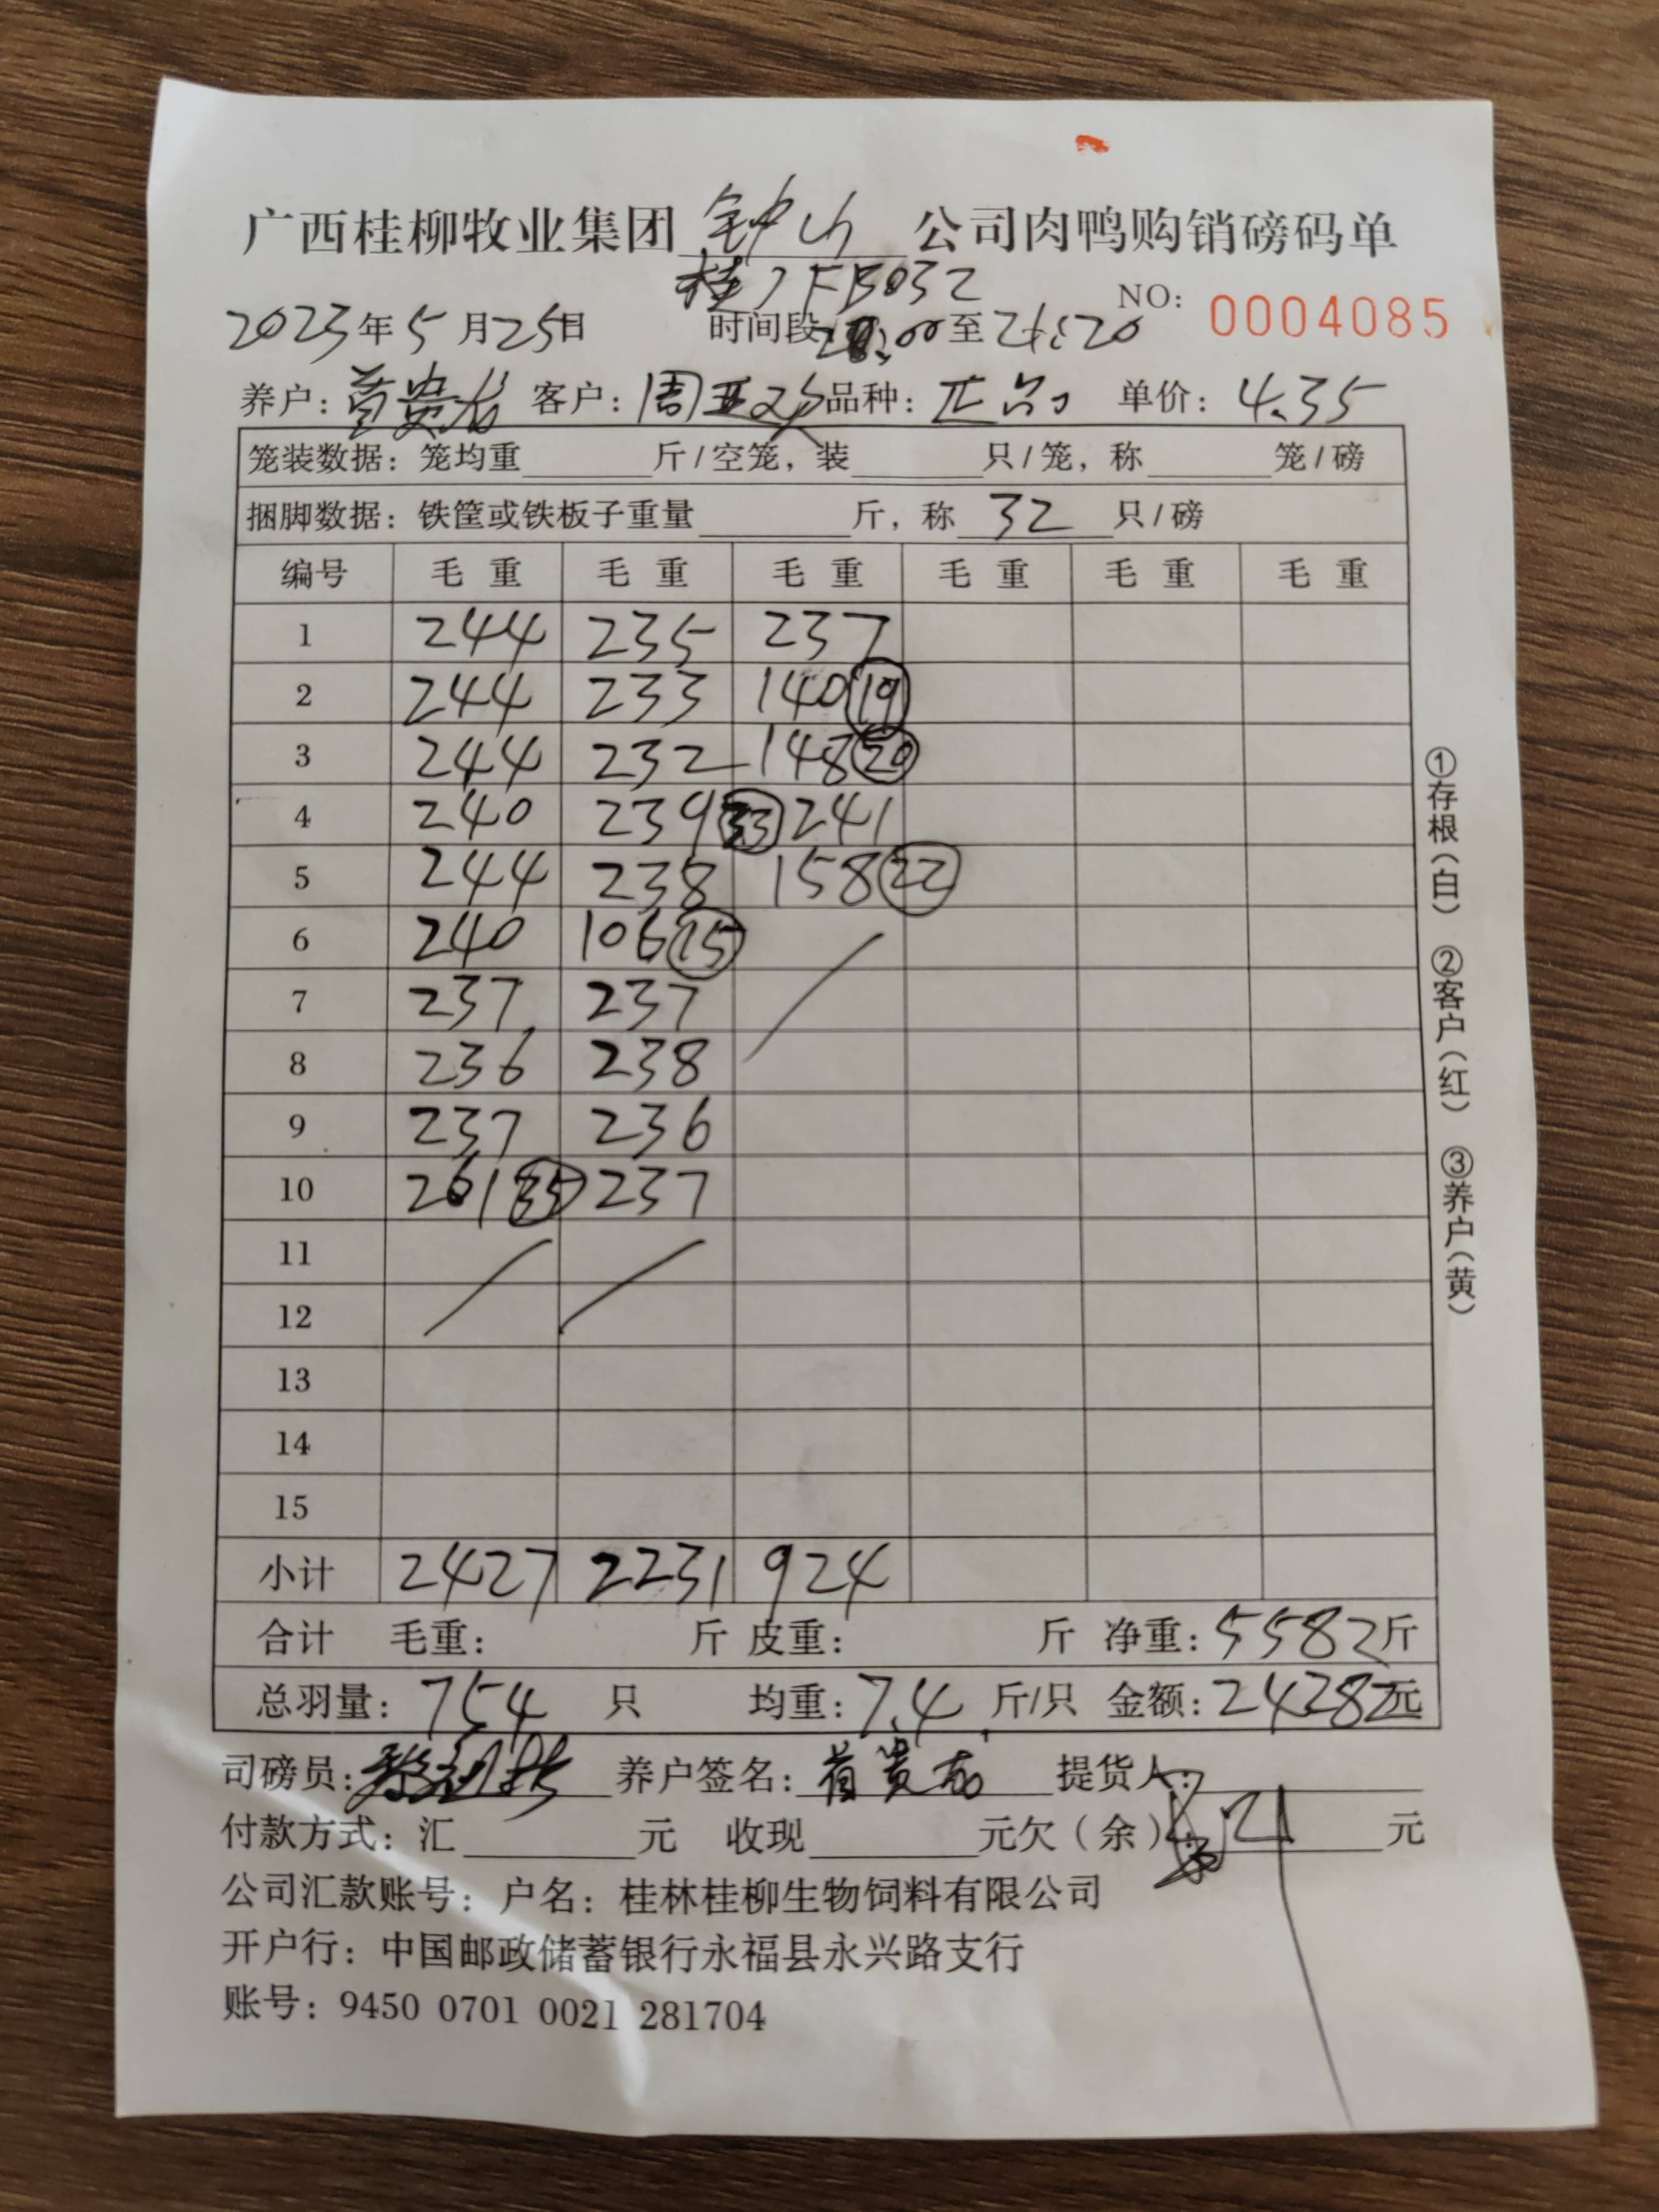 广西桂柳牧业集团 钟山 公司肉鸭购销磅码单
桂JFB032
NO: 0004085
2023年5月25日 时间段:00至21:20
养户: 贵 客户:周亚 品种:正品 单价:4.35
笼装数据:笼均重 斤/空笼,装 只/笼,称 笼/磅
捆脚数据:铁筐或铁板子重量 斤,称 32 只/磅
编号 毛重 毛重 毛重 毛重 毛重 毛重
1 244 235 237
2 244 233 140 19
3 244 232 148 20
4 240 239 33 241
5 244 238 158 22
6 240 106 15
7 237 237
8 236 238
9 237 236
10 261 35 237
11
12
13
14
15
小计 2427 2231 924
合计 毛重: 斤 皮重: 斤 净重:5582斤
总羽量:754 只 均重:7.4 斤/只 金额:24282元
司磅员: 养户签名: 贵 提货人:
付款方式:汇 元 收现 元欠(余): 元
公司汇款账号:户名:桂林桂柳生物饲料有限公司
开户行:中国邮政储蓄银行永福县永兴路支行
账号:9450 0701 0021 281704
①存根(白) ②客户(红) ③养户(黄)